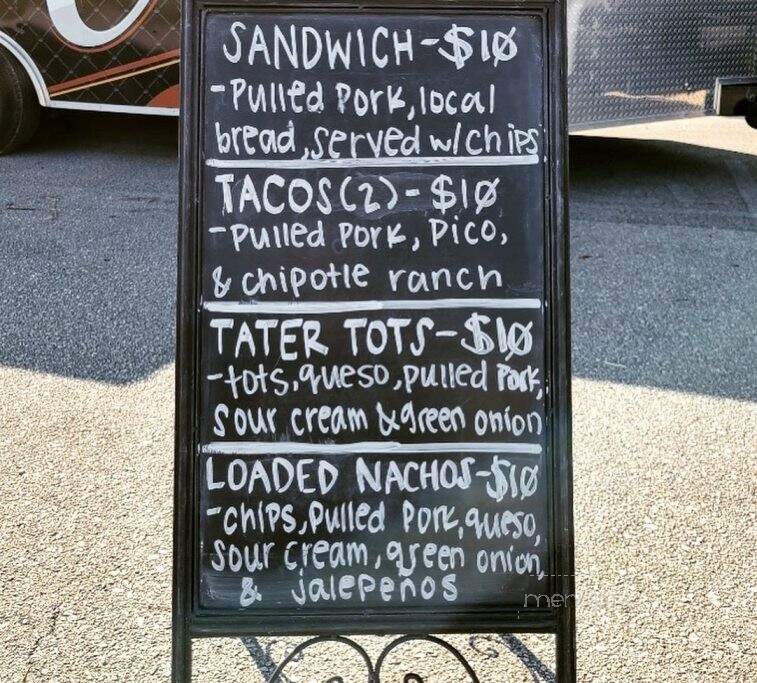 SANDWICH-$10
-Pulled Pork, local
bread, served w/chips
TACOS(2)-$10
-Pulled Pork, Pico,
& chipotle ranch
TATER TOTS-$10
-tots, queso, pulled Pork,
sour cream & green onion
LOADED NACHOS-$10
-chips, Pulled Pork, queso,
sour cream, green onion,
& jalepeños